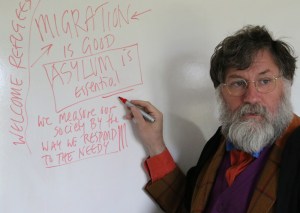 WELCOME REFUGEES
MIGRATION
IS GOOD
ASYLUM is
essential
We measure our
society by the
WAY WE RESPOND
TO THE NEEDY!!!